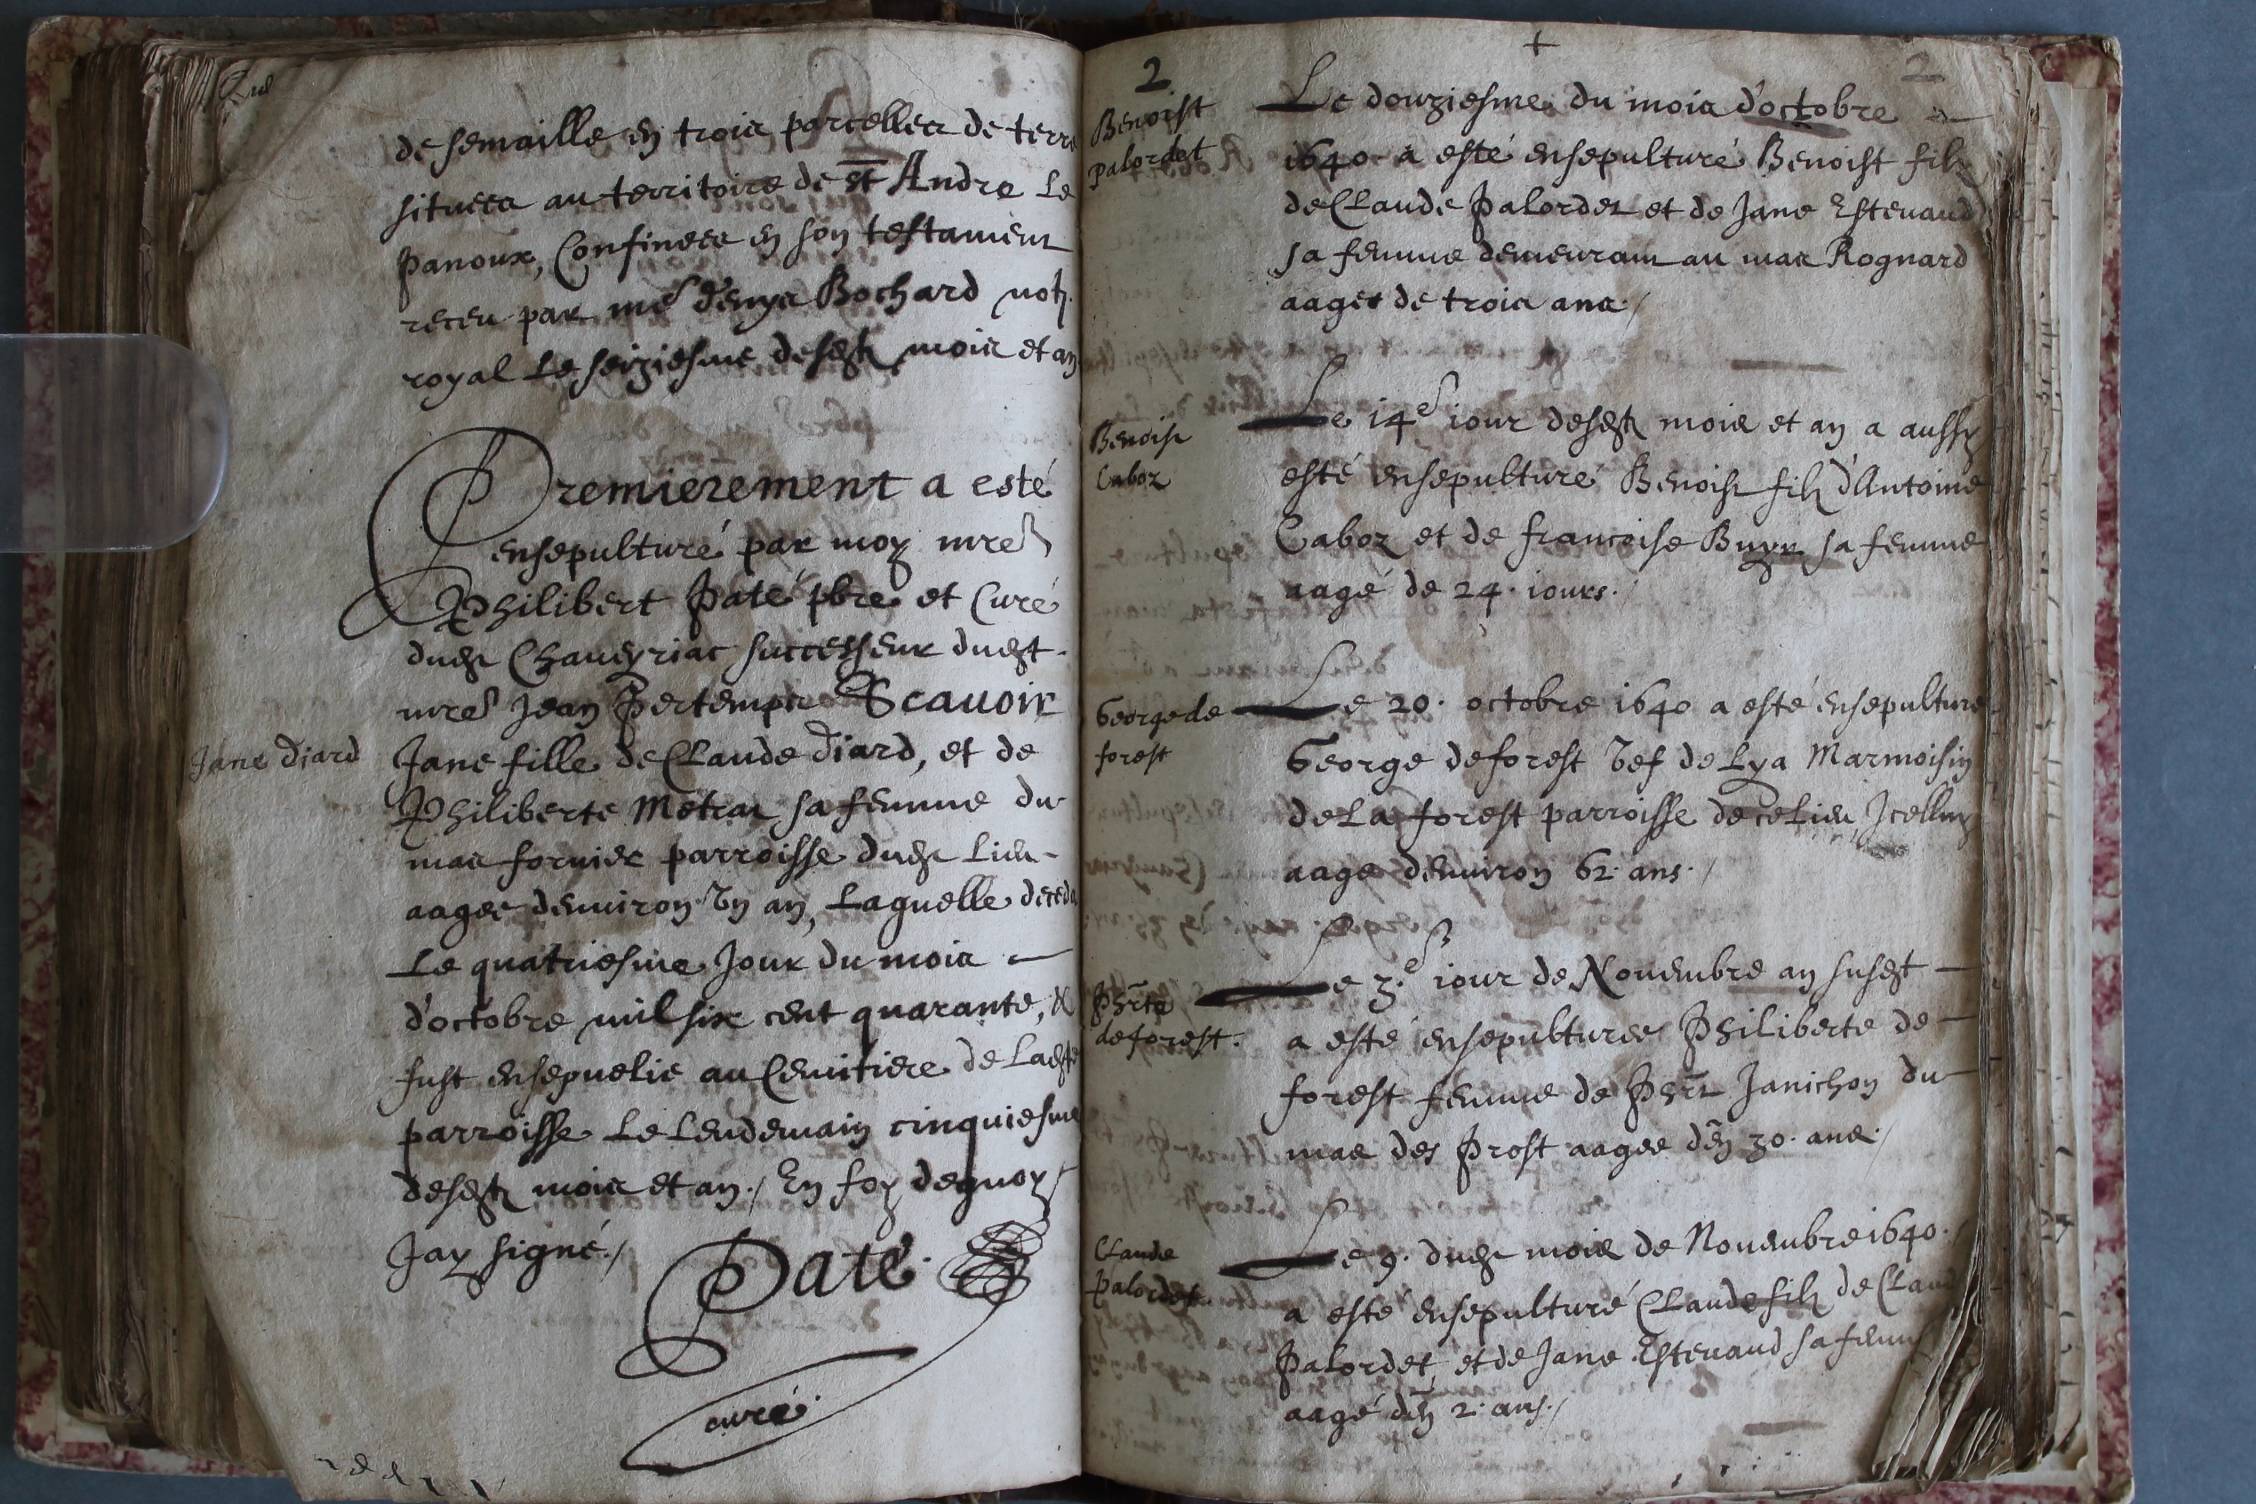 de semaille en trois parcelles de terre
situees au territoire de st Andre Le
Panoux, Confinees en son testament
receu par me denys Bochard not.
royal Le seiziesme desdt mois et an
Premierement a esté
ensepulturé par moy mre
Philibert Paté pbre et Curé
dudt Chaveyriac successeur dudt
mre Jean Pertemps Scavoir
Jane diard
Jane fille de Claude diard, et de
Philiberte Metrat sa femme du
mas fornier parroisse dudt Lieu
aagee denviron Vn an, Laquelle deceda
Le quatriesme Jour du mois
d'octobre mil six cent quarante, &
fust ensepuelie au Cemitiere de Ladte
parroisse Le Lendemain cinquiesme
desdt mois et an./ En foy dequoy
Jay signé./
Paté
curé
2
2
Benoist
Palordet
Le douziesme du mois d'octobre
1640 a esté ensepulturé Benoist filz
de Claude Palordet et de Jane Estevaud
sa femme demeurant au mas Rognard
aagé de trois ans./
Benoist
Caboz
Le 14e iour desdt mois et an a aussy
esté ensepulturé Benoist filz d'Antoine
Caboz et de francoise Buyr sa femme
aagé de 24. iours./
George de
forest
Le 20. octobre 1640 a esté ensepulturé
George deforest Vef de Lya Marmoisin
de La forest parroisse de ce Lieu, Jcelluy
aagé denviron 62. ans./
Phrte
deforest.
Le 3.e iour de Novembre an susdt
a esté ensepulturee Philiberte de
forest femme de Phrt Janichon du
mas des Prost aagee den 30. ans./
Claude
Palordet
Le 9. dudt mois de Novembre 1640.
a esté ensepulturé Claude filz de Claud
Palordet, et de Jane Estevaud sa femm
aagé den 2. ans./